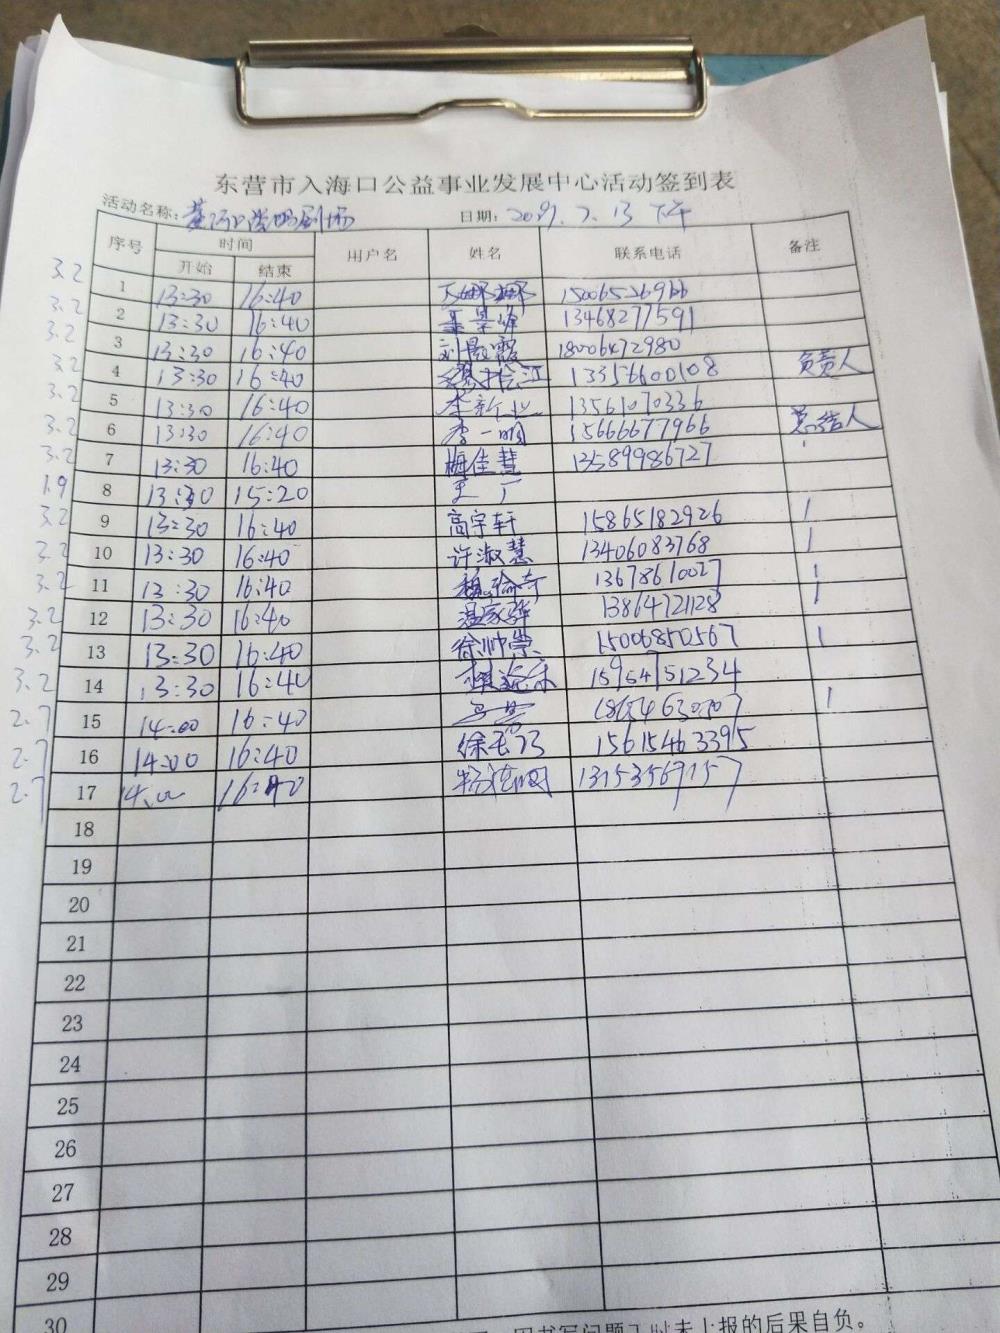 东营市入海口公益事业发展中心活动签到表
活动名称: 黄河口 剧场 日期: 2019.7.13 下午
序号 时间 用户名 姓名 联系电话 备注
开始 结束
3.2 1 13:30 16:40 娜娜 15006526966
3.2 2 13:30 16:40 13468277591
3.2 3 13:30 16:40 刘 霞 18006472980
3.2 4 13:30 16:40 13356600108 负责人
3.2 5 13:30 16:40 李新业 13561070336
3.2 6 13:30 16:40 李一明 15666677966 总结人
3.2 7 13:30 16:40 梅佳慧 13589986727
1.9 8 13:30 15:20 王广
3.2 9 13:30 16:40 高宇轩 15865182926 1
3.2 10 13:30 16:40 许淑慧 13406083768 1
3.2 11 13:30 16:40 13678610027 1
3.2 12 13:30 16:40 温家骅 13864721128 1
3.2 13 13:30 16:40 徐帅崇 15006850567 1
3.2 14 13:30 16:40 15954751234
2.7 15 14:00 16:40 18654630307 1
2.7 16 14:00 16:40 15615463395
2.7 17 14:00 16:40 13153569157
18
19
20
21
22
23
24
25
26
27
28
29
30
因书写问题 时未上报的后果自负。